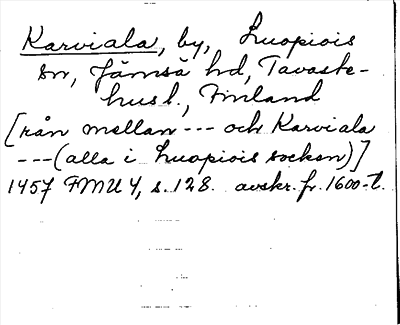 Karviala, by, Luopiois
sn, Jämsä hd, Tavaste-
husl., Finland
[rån mellan --- och Karviala
--- (alla i Luopiois socken)]
1457 FMU 4, s. 128. avskr. fr. 1600-t.